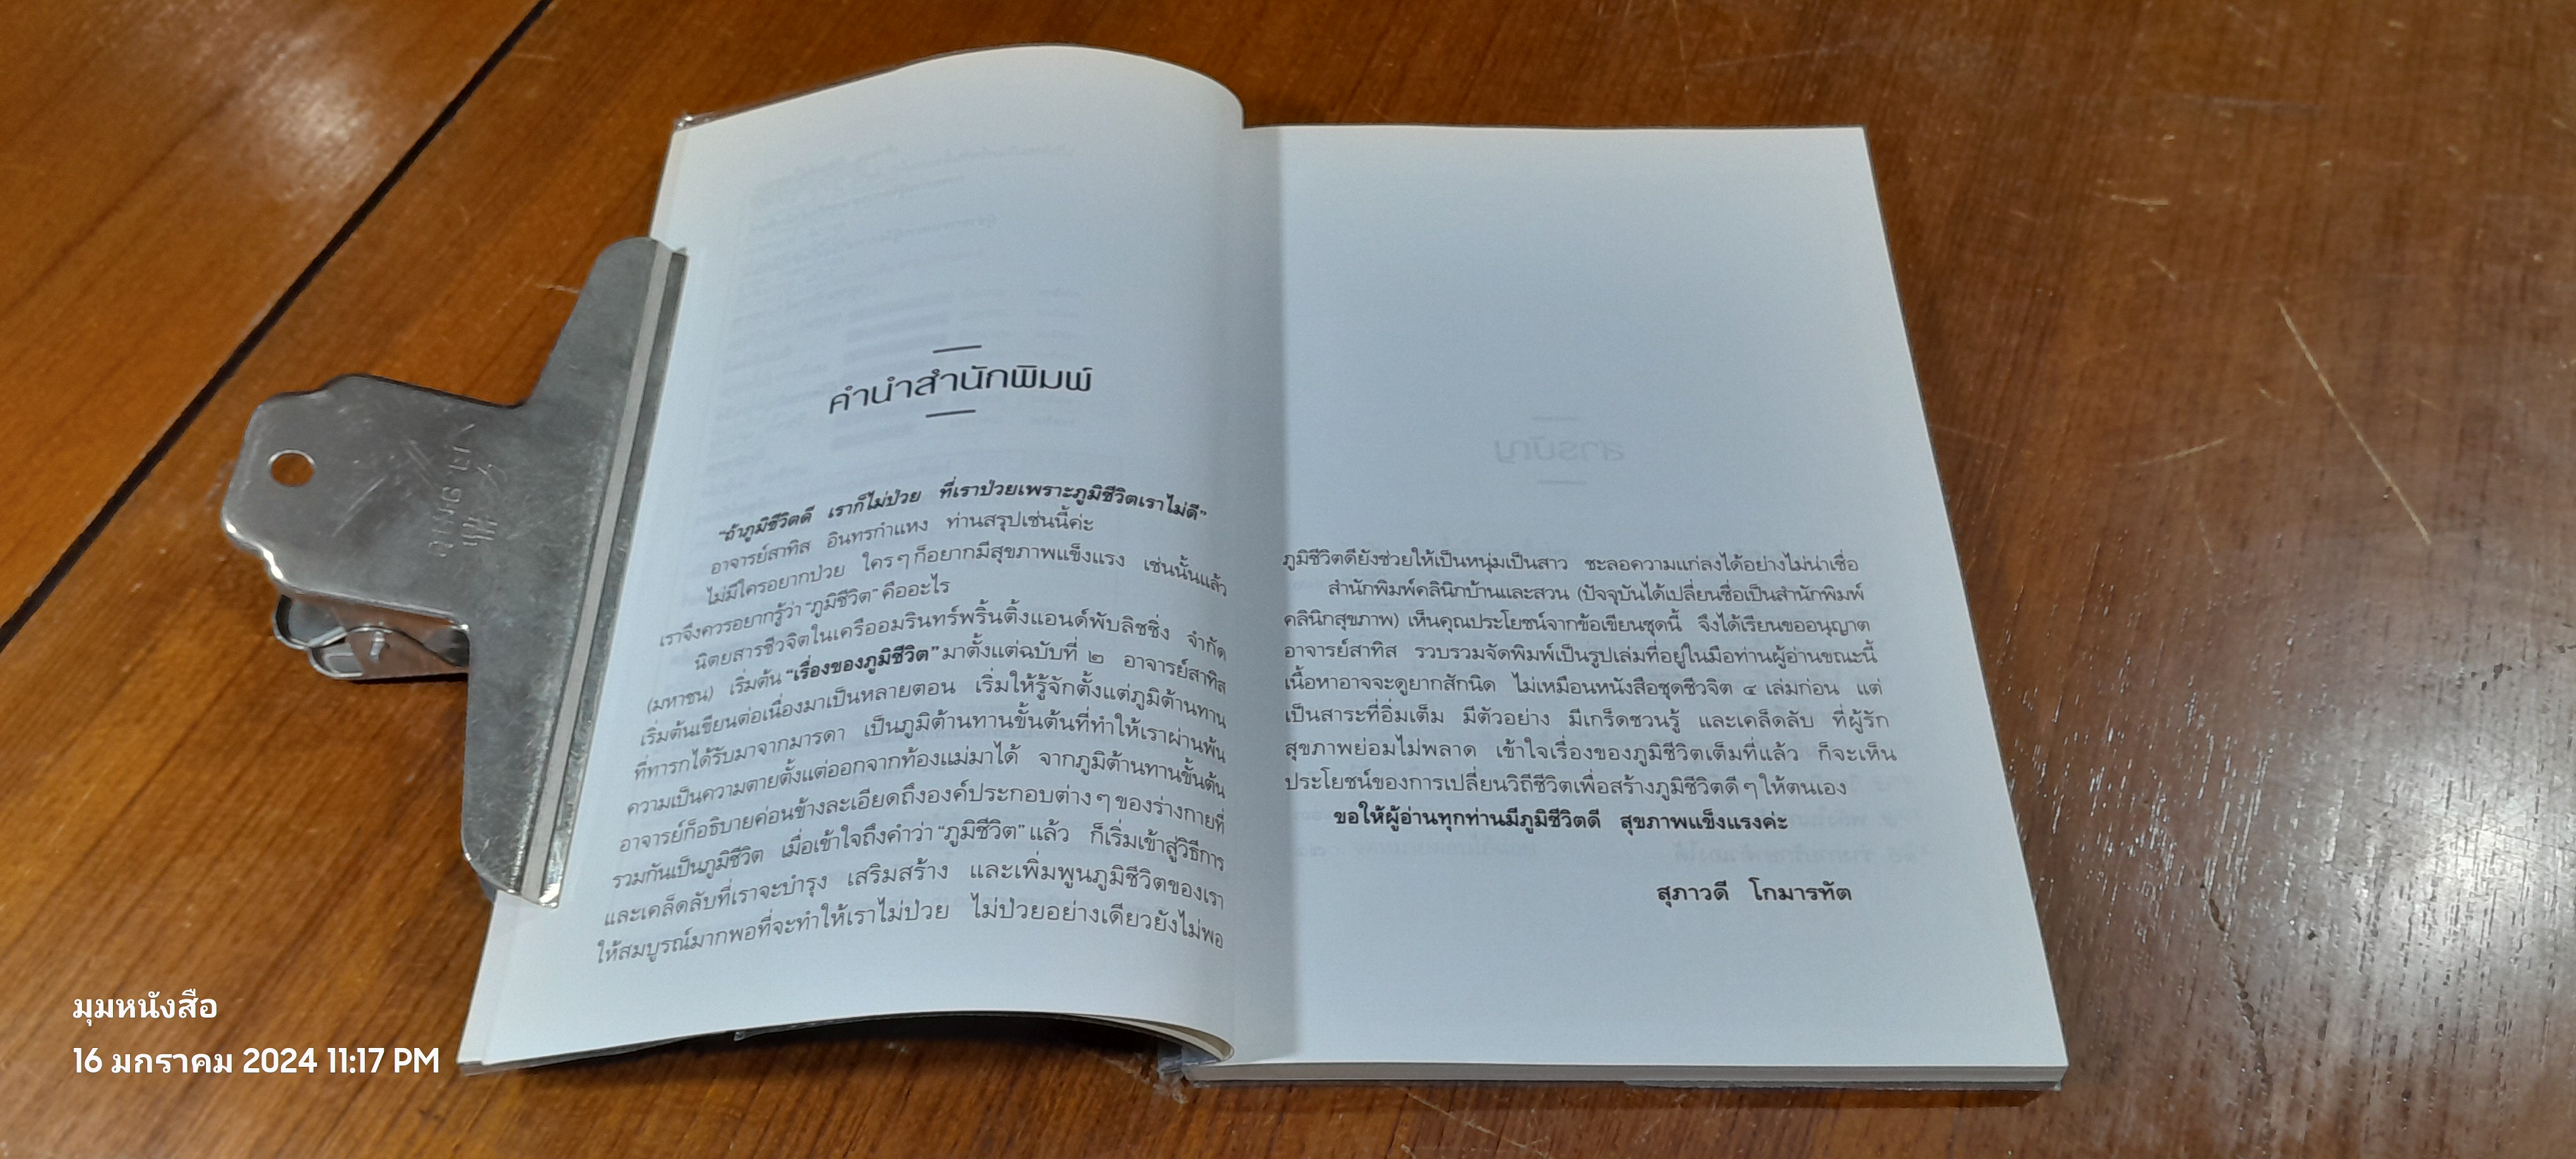 คำนำสำนักพิมพ์
“ถ้าภูมิชีวิตดี เราก็ไม่ป่วย ที่เราป่วยเพราะภูมิชีวิตเราไม่ดี”
อาจารย์สาทิส อินทรกำแหง ท่านสรุปเช่นนี้ค่ะ
ไม่มีใครอยากป่วย ใครๆ ก็อยากมีสุขภาพแข็งแรง เช่นนั้นแล้ว
เราจึงควรอยากรู้ว่า “ภูมิชีวิต” คืออะไร
นิตยสารชีวจิตในเครืออมรินทร์พริ้นติ้งแอนด์พับลิชชิ่ง จำกัด
(มหาชน) เริ่มต้น “เรื่องของภูมิชีวิต” มาตั้งแต่ฉบับที่ ๒ อาจารย์สาทิส
เริ่มต้นเขียนต่อเนื่องมาเป็นหลายตอน เริ่มให้รู้จักตั้งแต่ภูมิต้านทาน
ที่ทารกได้รับมาจากมารดา เป็นภูมิต้านทานขั้นต้นที่ทำให้เราผ่านพ้น
ความเป็นความตายตั้งแต่ออกจากท้องแม่มาได้ จากภูมิต้านทานขั้นต้น
อาจารย์ก็อธิบายค่อนข้างละเอียดถึงองค์ประกอบต่างๆ ของร่างกายที่
รวมกันเป็นภูมิชีวิต เมื่อเข้าใจถึงคำว่า “ภูมิชีวิต” แล้ว ก็เริ่มเข้าสู่วิธีการ
และเคล็ดลับที่เราจะบำรุง เสริมสร้าง และเพิ่มพูนภูมิชีวิตของเรา
ให้สมบูรณ์มากพอที่จะทำให้เราไม่ป่วย ไม่ป่วยอย่างเดียวยังไม่พอ
ภูมิชีวิตดียังช่วยให้เป็นหนุ่มเป็นสาว ชะลอความแก่ลงได้อย่างไม่น่าเชื่อ
สำนักพิมพ์คลินิกบ้านและสวน (ปัจจุบันได้เปลี่ยนชื่อเป็นสำนักพิมพ์
คลินิกสุขภาพ) เห็นคุณประโยชน์จากข้อเขียนชุดนี้ จึงได้เรียนขออนุญาต
อาจารย์สาทิส รวบรวมจัดพิมพ์เป็นรูปเล่มที่อยู่ในมือท่านผู้อ่านขณะนี้
เนื้อหาอาจจะดูยากสักนิด ไม่เหมือนหนังสือชุดชีวจิต ๔ เล่มก่อน แต่
เป็นสาระที่อิ่มเต็ม มีตัวอย่าง มีเกร็ดชวนรู้ และเคล็ดลับ ที่ผู้รัก
สุขภาพย่อมไม่พลาด เข้าใจเรื่องของภูมิชีวิตเต็มที่แล้ว ก็จะเห็น
ประโยชน์ของการเปลี่ยนวิถีชีวิตเพื่อสร้างภูมิชีวิตดีๆ ให้ตนเอง
ขอให้ผู้อ่านทุกท่านมีภูมิชีวิตดี สุขภาพแข็งแรงค่ะ
สุภาวดี โกมารทัต
มุมหนังสือ
16 มกราคม 2024 11:17 PM